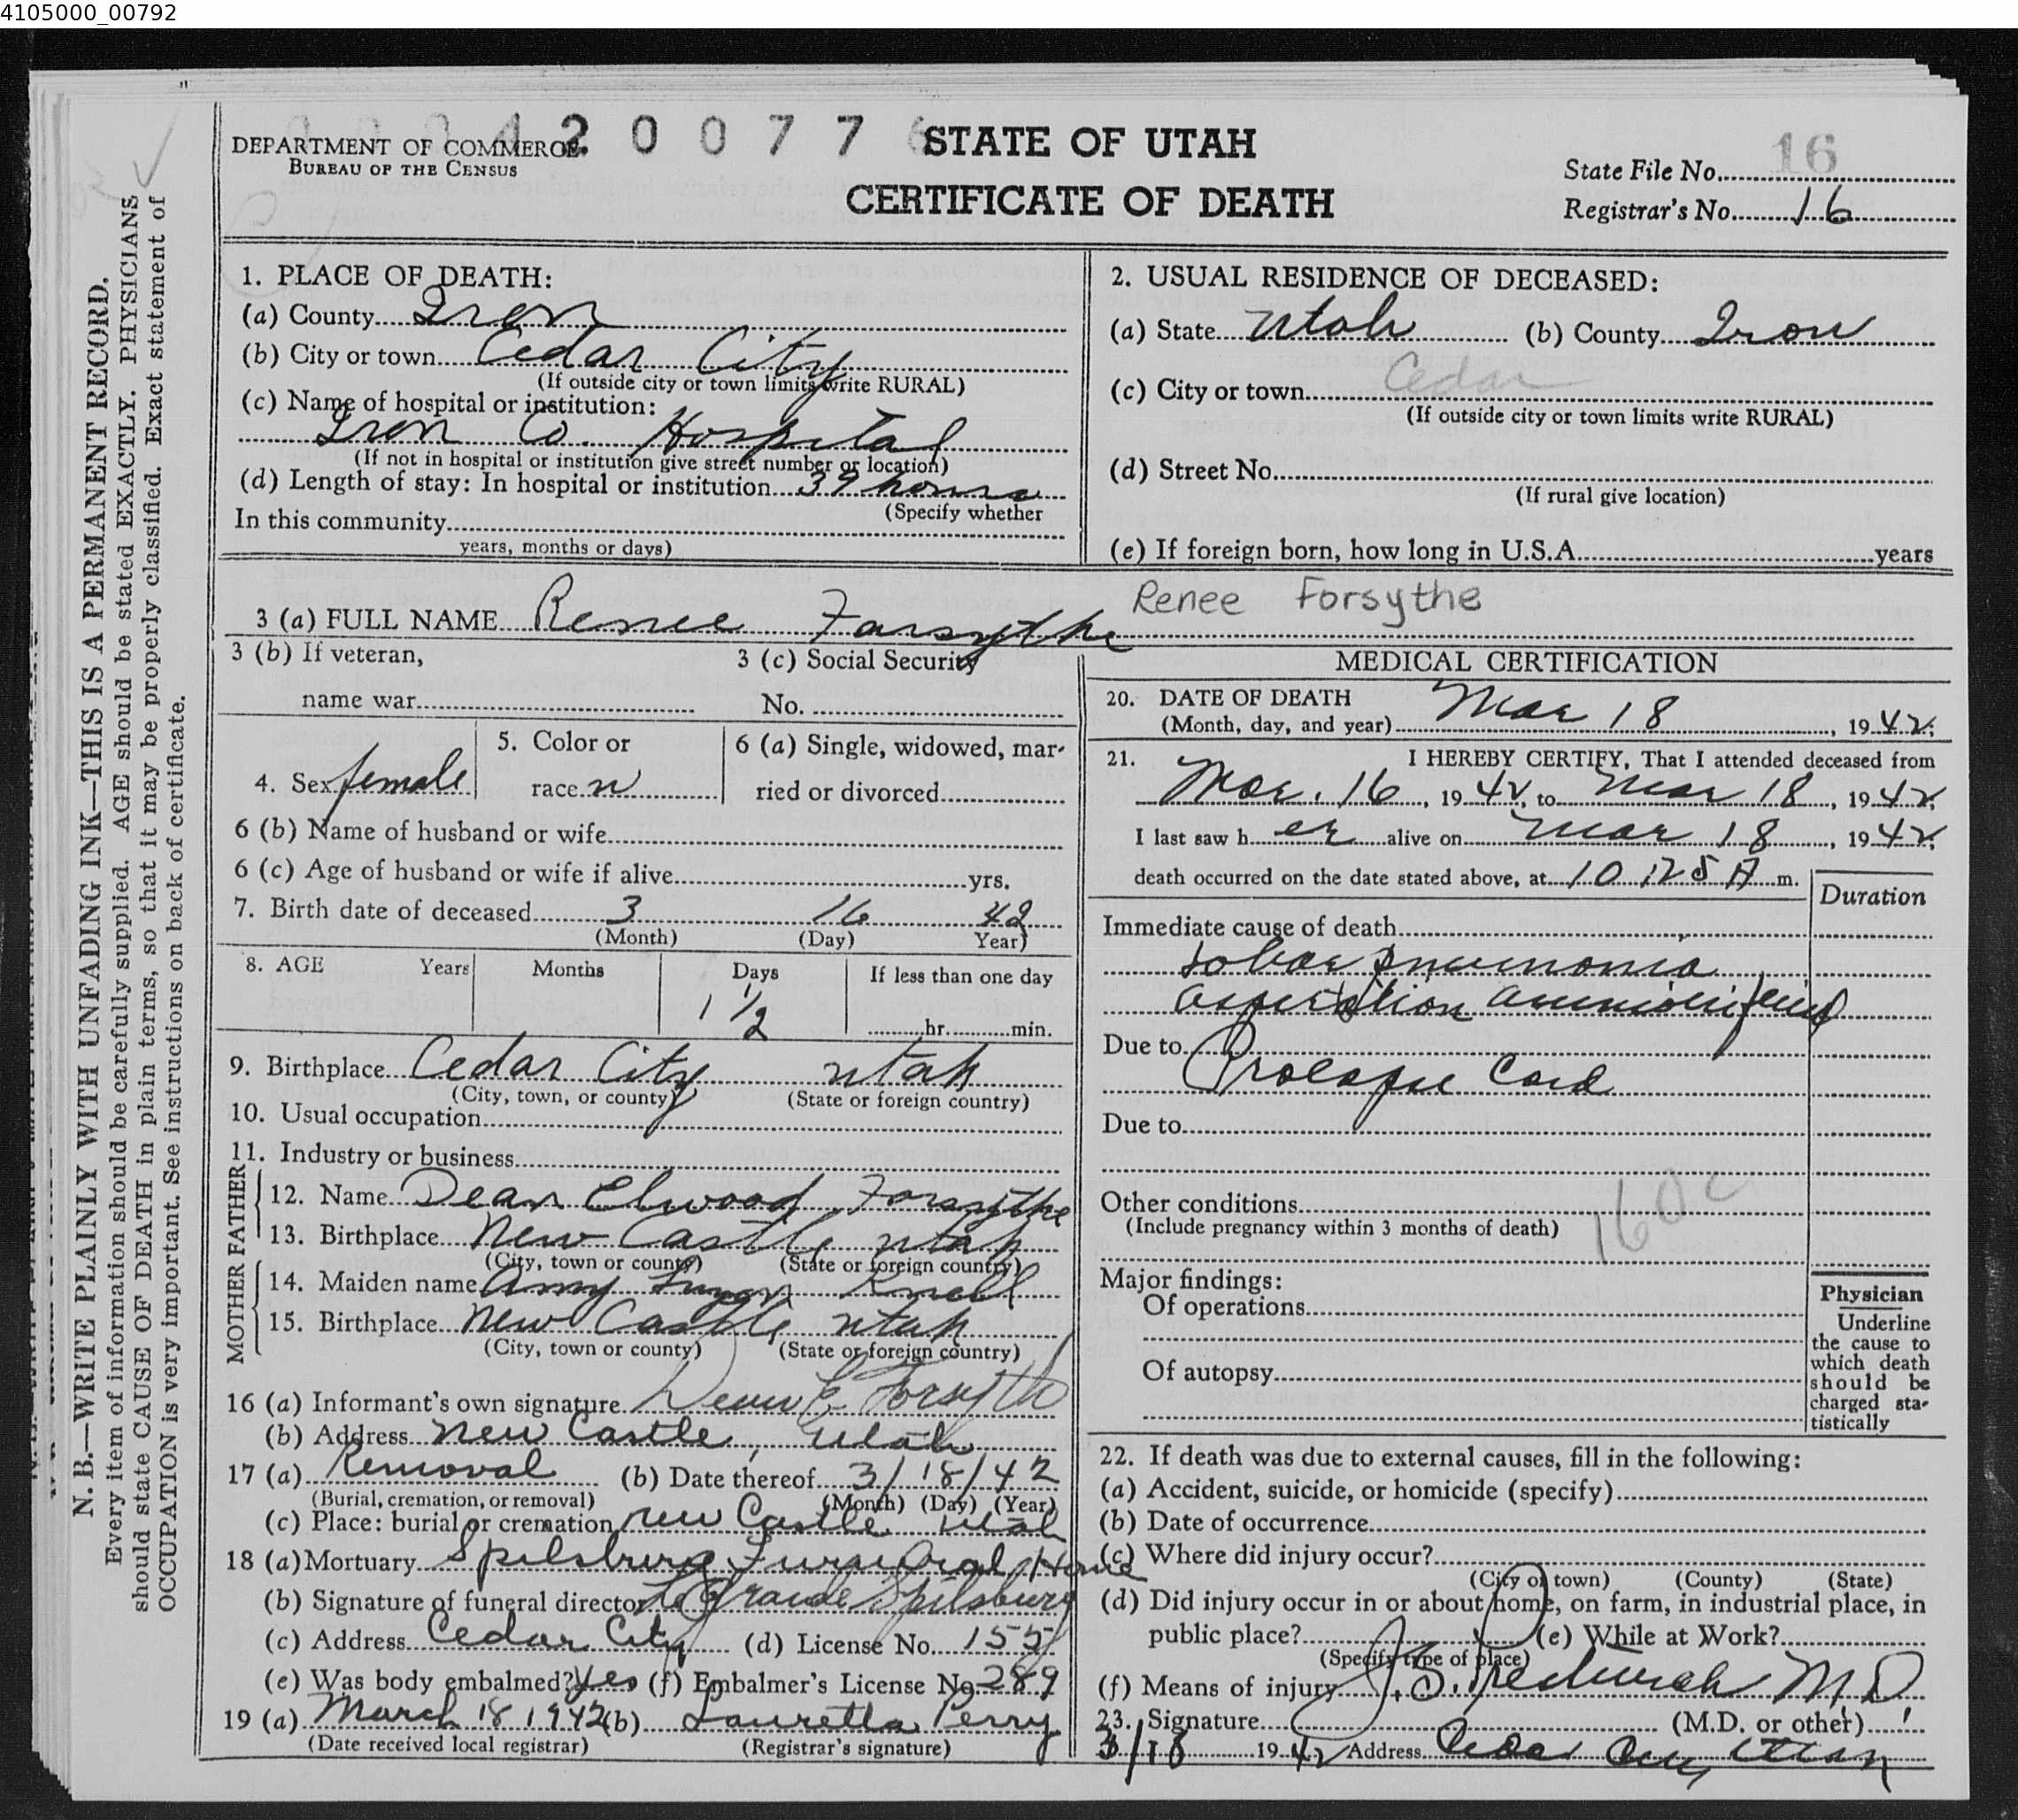 4105000_00792
DEPARTMENT OF COMMERCE
BUREAU OF THE CENSUS
2 0 0 7 7
STATE OF UTAH
CERTIFICATE OF DEATH
State File No. 16
Registrar's No. 16
N. B.—WRITE PLAINLY WITH UNFADING INK—THIS IS A PERMANENT RECORD.
Every item of information should be carefully supplied. AGE should be stated EXACTLY. PHYSICIANS
should state CAUSE OF DEATH in plain terms, so that it may be properly classified. Exact statement of
OCCUPATION is very important. See instructions on back of certificate.
1. PLACE OF DEATH:
(a) County Iron
(b) City or town Cedar City
(If outside city or town limits write RURAL)
(c) Name of hospital or institution:
Iron Co. Hospital
(If not in hospital or institution give street number or location)
(d) Length of stay: In hospital or institution 39 hours
(Specify whether
In this community
years, months or days)
2. USUAL RESIDENCE OF DECEASED:
(a) State Utah (b) County Iron
(c) City or town Cedar
(If outside city or town limits write RURAL)
(d) Street No.
(If rural give location)
(e) If foreign born, how long in U.S.A. years
3 (a) FULL NAME Renee Forsythe Renee Forsythe
3 (b) If veteran,
name war
3 (c) Social Security
No.
4. Sex female
5. Color or
race w
6 (a) Single, widowed, mar-
ried or divorced
6 (b) Name of husband or wife
6 (c) Age of husband or wife if alive yrs.
7. Birth date of deceased 3 16 42
(Month) (Day) Year)
8. AGE Years Months Days If less than one day
1 1/2
hr. min.
9. Birthplace Cedar City Utah
(City, town, or county) (State or foreign country)
10. Usual occupation
11. Industry or business
FATHER
12. Name Dean Elwood Forsythe
13. Birthplace New Castle Utah
(City, town or county) (State or foreign country)
MOTHER
14. Maiden name Amy Knell
15. Birthplace New Castle Utah
(City, town or county) (State or foreign country)
16 (a) Informant's own signature Dean E Forsyth
(b) Address New Castle, Utah
17 (a) Removal (b) Date thereof 3/18/42
(Burial, cremation, or removal) (Month) (Day) (Year)
(c) Place: burial or cremation New Castle Utah
18 (a) Mortuary Spilsbury Funeral Home
(b) Signature of funeral director LeGrande Spilsbury
(c) Address Cedar City (d) License No. 155
(e) Was body embalmed? Yes (f) Embalmer's License No. 289
19 (a) March 18 1942 (b) Lauretta Perry
(Date received local registrar) (Registrar's signature)
MEDICAL CERTIFICATION
20. DATE OF DEATH
(Month, day, and year) Mar 18, 1942;
21. I HEREBY CERTIFY, That I attended deceased from
Mar. 16, 1942, to Mar 18, 1942;
I last saw her alive on Mar 18, 1942;
death occurred on the date stated above, at 10:25 A m.
Duration
Immediate cause of death
Lobar pneumonia
aspiration
Due to
Prolapse Cord
Due to
Other conditions
(Include pregnancy within 3 months of death)
160c
Major findings:
Of operations
Of autopsy
Physician
Underline
the cause to
which death
should be
charged sta-
tistically
22. If death was due to external causes, fill in the following:
(a) Accident, suicide, or homicide (specify)
(b) Date of occurrence
(c) Where did injury occur?
(City or town) (County) (State)
(d) Did injury occur in or about home, on farm, in industrial place, in
public place? (e) While at Work?
(Specify type of place)
(f) Means of injury
23. Signature M.D. (M.D. or other)
3/18 1942 Address Cedar City Utah